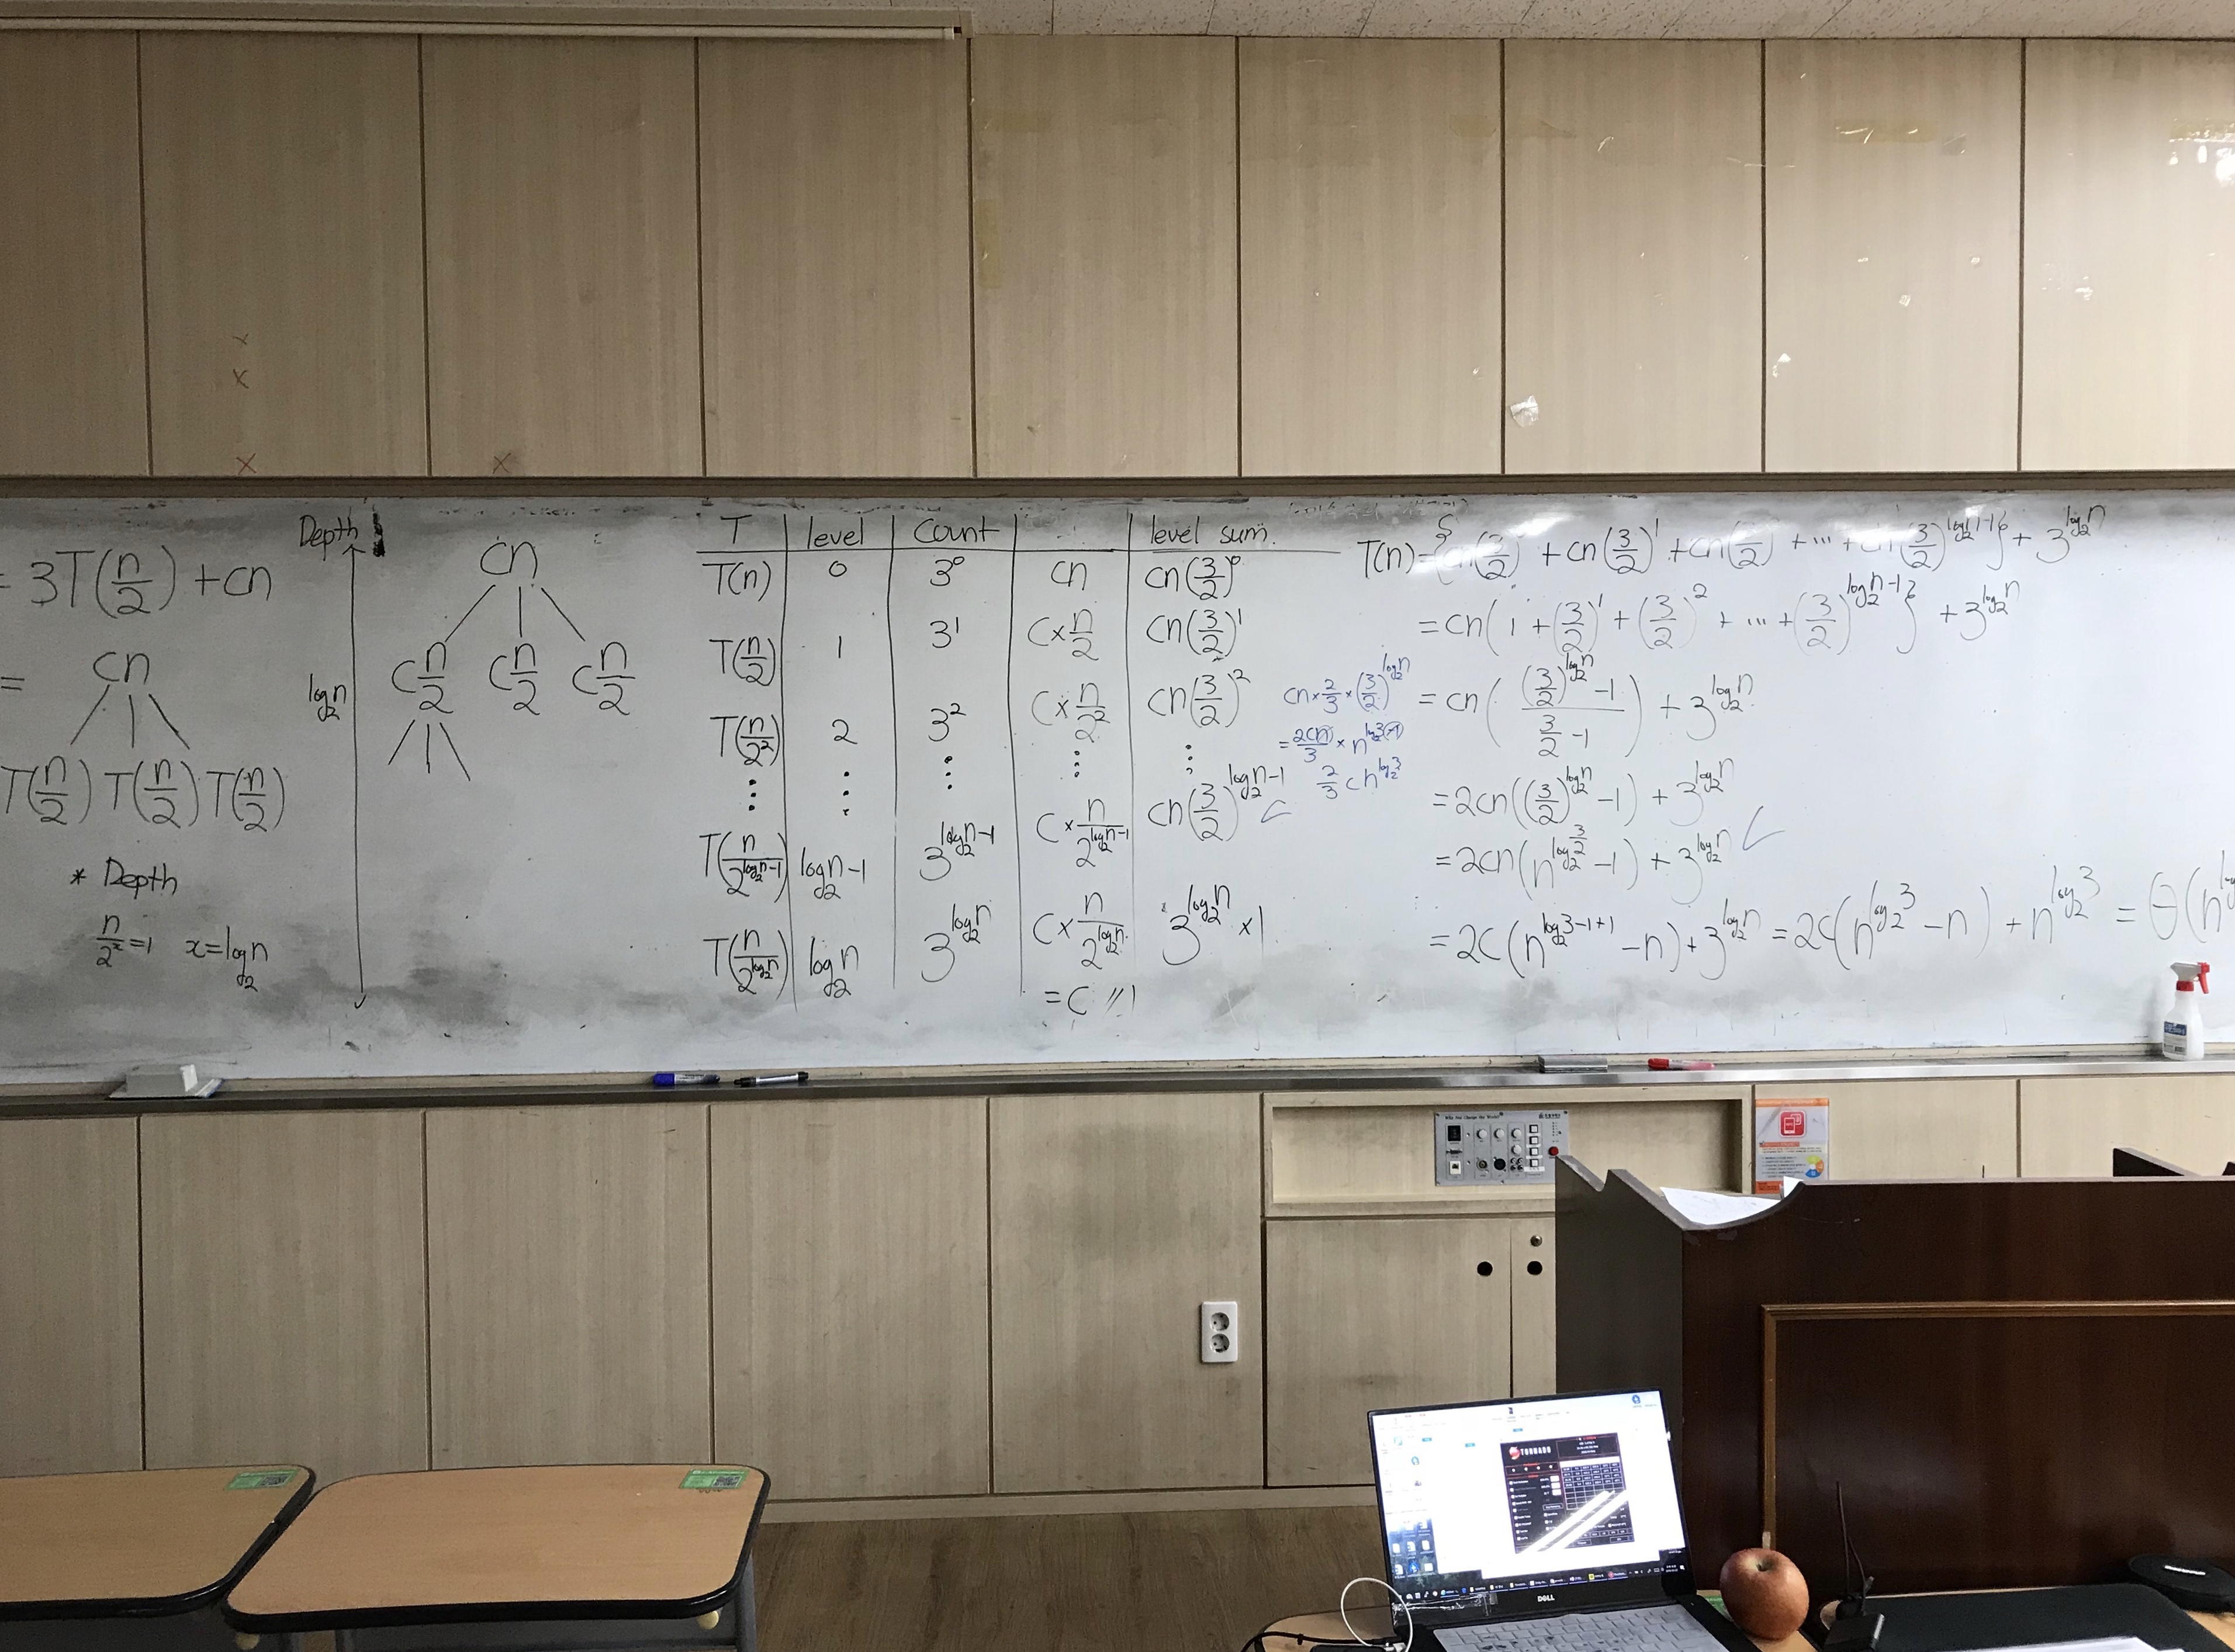 = 3T(n/2) + cn
=
cn
T(n/2) T(n/2) T(n/2)
* Depth
n/2^x = 1 x = log₂n
Depth
log₂n
cn
c n/2 c n/2 c n/2
T level Count level sum.
T(n) 0 3^0 cn cn(3/2)^0
T(n/2) 1 3^1 C × n/2 cn(3/2)^1
T(n/2^2) 2 3^2 C × n/2^2 cn(3/2)^2
⋮ ⋮ ⋮ ⋮ ⋮
T(n/2^(log₂n-1)) log₂n-1 3^(log₂n-1) C × n/2^(log₂n-1) cn(3/2)^(log₂n-1)
T(n/2^(log₂n)) log₂n 3^(log₂n) C × n/2^(log₂n) 3^(log₂n) × 1
= C // 1
cn × 2/3 × (3/2)^(log₂n)
= 2cn/3 × n^(log₂3-1)
2/3 cn^(log₂3)
T(n) = {cn(3/2) + cn(3/2)^1 + cn(3/2) + ... + cn(3/2)^(log₂n-1)} + 3^(log₂n)
= cn(1 + (3/2)^1 + (3/2)^2 + ... + (3/2)^(log₂n-1)} + 3^(log₂n)
= cn(((3/2)^(log₂n) - 1)/(3/2 - 1)) + 3^(log₂n)
= 2cn((3/2)^(log₂n) - 1) + 3^(log₂n)
= 2cn(n^(log₂ 3/2) - 1) + 3^(log₂n)
= 2C(n^(log₂3-1+1) - n) + 3^(log₂n) = 2C(n^(log₂3) - n) + n^(log₂3) = Θ(n^
TORNADO
DELL